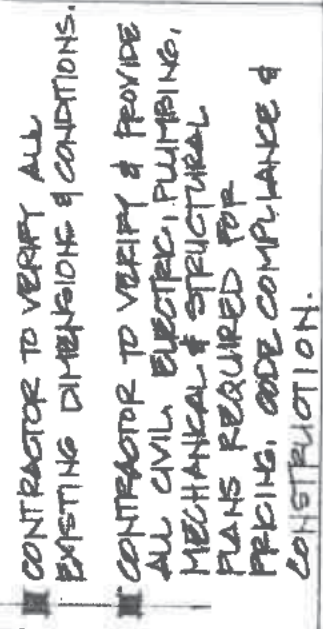 CONTRACTOR TO VERIFY ALL
EXISTING DIMENSIONS & CONDITIONS.
CONTRACTOR TO VERIFY & PROVIDE
ALL CIVIL, ELECTRIC, PLUMBING,
MECHANICAL & STRUCTURAL
PLANS REQUIRED FOR
PRICING, CODE COMPLIANCE &
CONSTRUCTION.